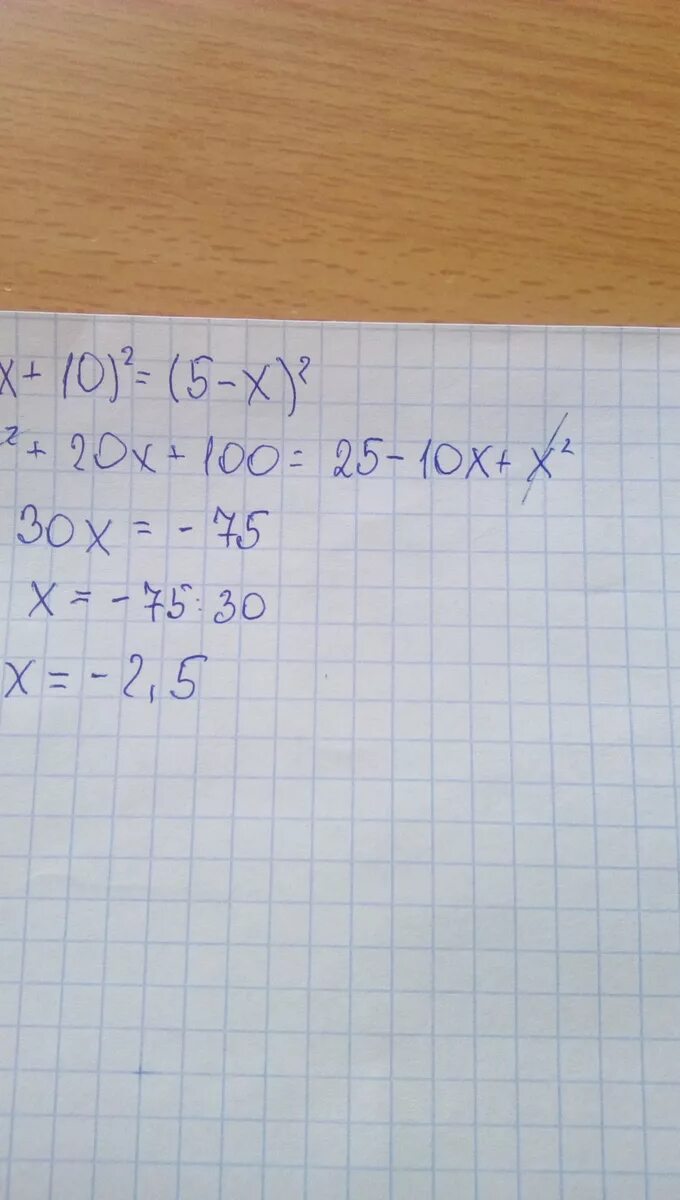 x + 10)² = (5 - x)²
² + 20x + 100 = 25 - 10x + x²
30x = - 75
x = - 75 : 30
x = - 2,5